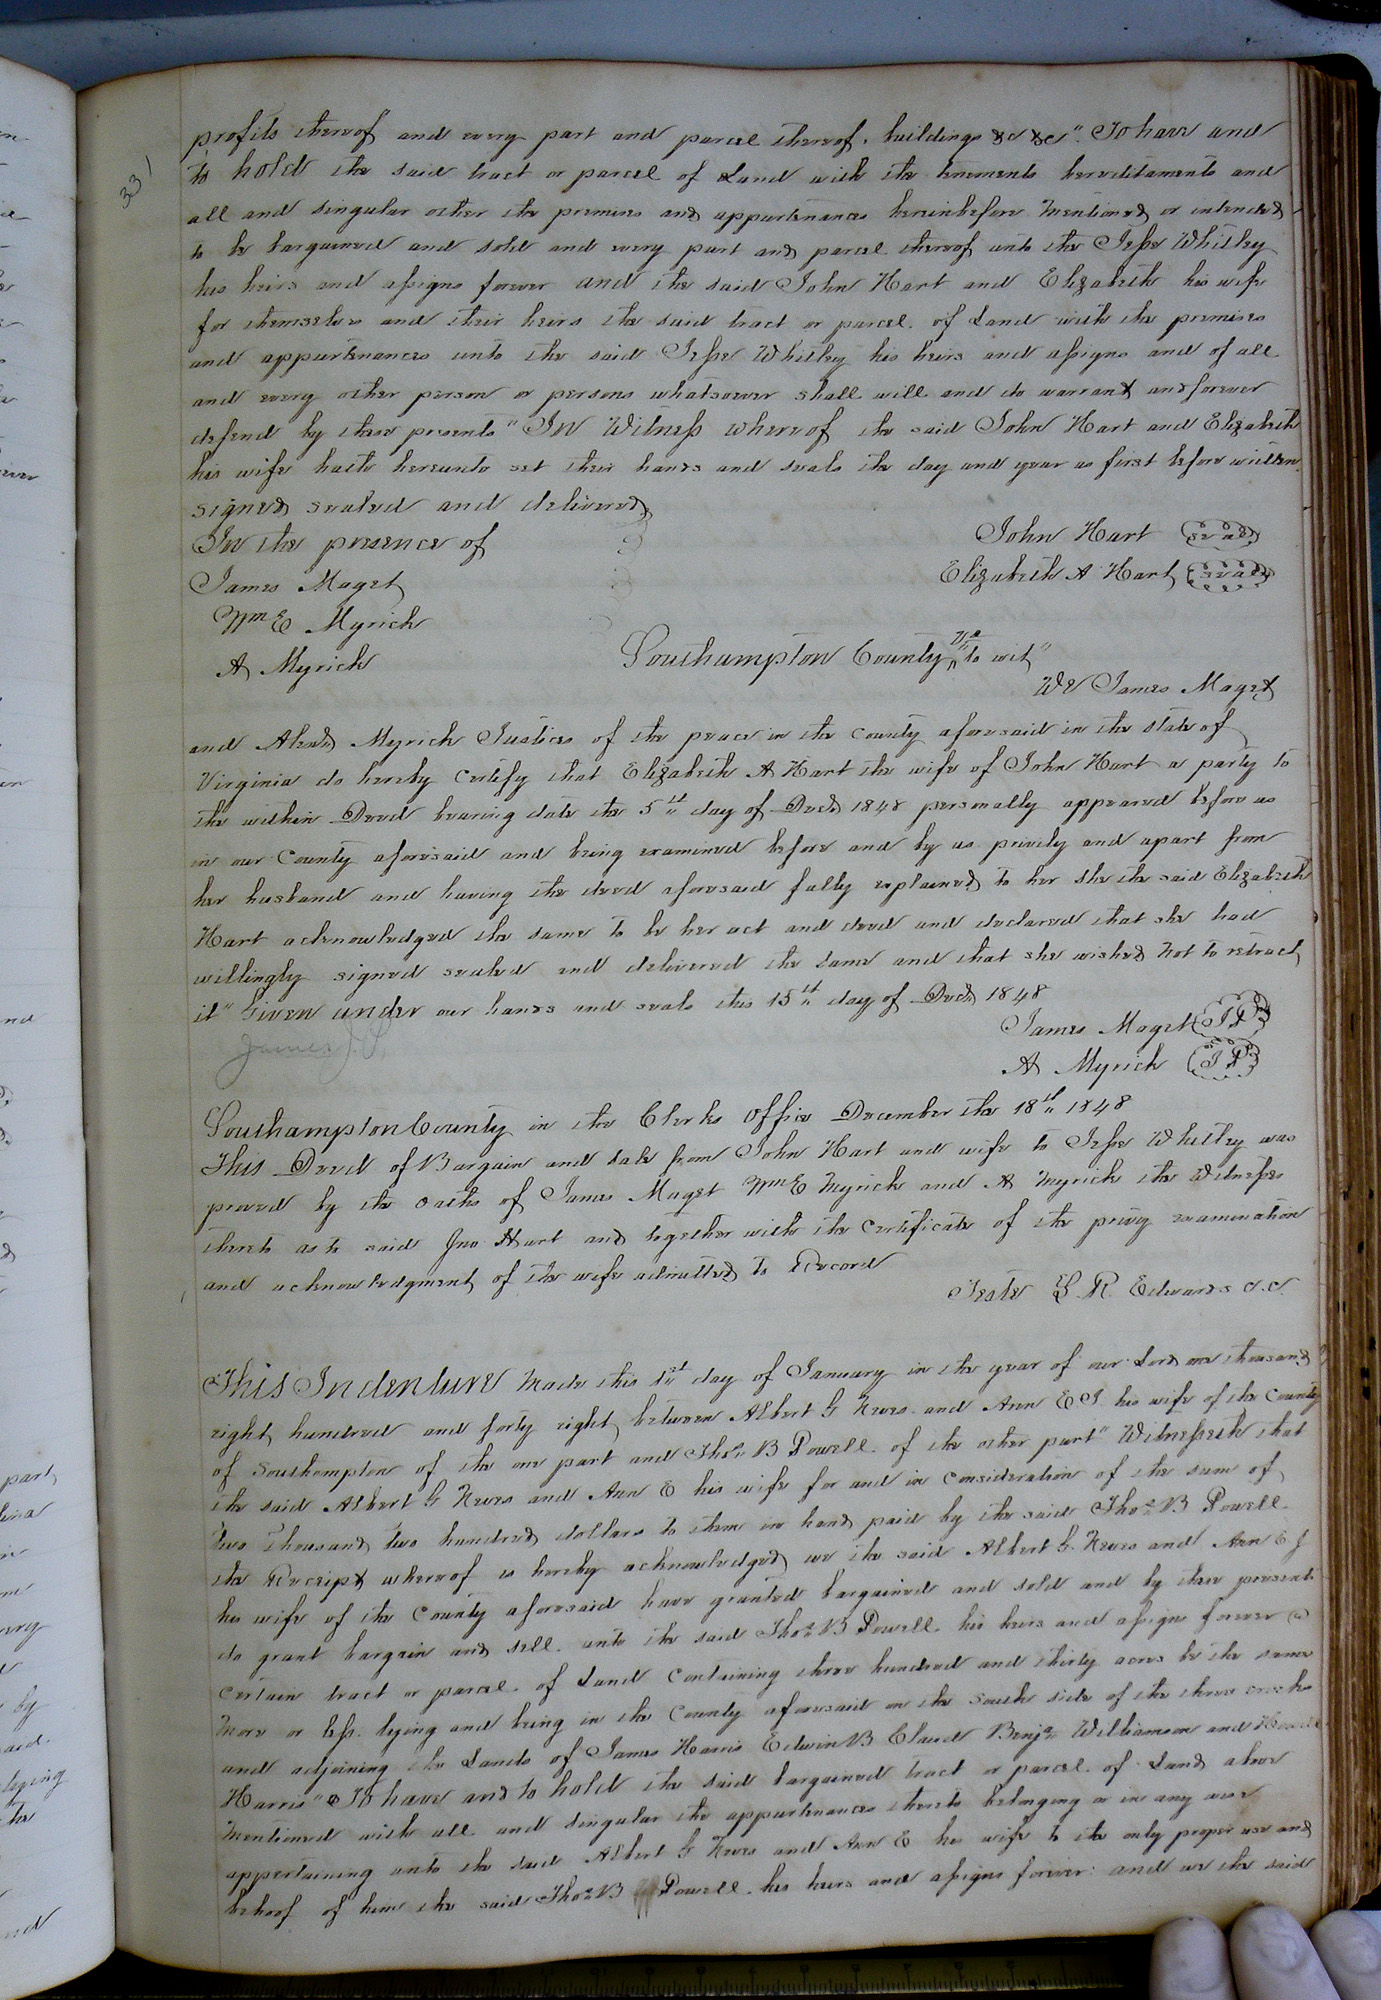 331
profits thereof and every part and parcel thereof, buildings &c &c". To have and
to hold the said tract or parcel of Land with the tenements hereditaments and
all and singular other the premises and appurtenances hereinbefore mentioned or intended
to be bargained and sold and every part and parcel thereof unto the Jesse Whitley
his heirs and assigns forever and the said John Hart and Elizabeth his wife
for themselves and their heirs the said tract or parcel of Land with the premises
and appurtenances unto the said Jesse Whitley his heirs and assigns and of all
and every other person or persons whatsoever shall will and do warrant and forever
defend by these presents" In Witness whereof the said John Hart and Elizabeth
his wife hath hereunto set their hands and seals the day and year as first before written.
signed sealed and delivered
In the presence of
John Hart (seal)
James Maget
Elizabeth A Hart (seal)
Wm E Myrick
A Myrick
Southampton County Va to wit"
We James Maget
and Alexd Myrick Justices of the peace in the county aforesaid in the state of
Virginia do hereby certify that Elizabeth A Hart the wife of John Hart a party to
the within Deed bearing date the 5th day of Decr 1848 personally appeared before us
in our County aforesaid and being examined before and by us privily and apart from
her husband and having the deed aforesaid fully explained to her she the said Elizabeth
Hart acknowledged the same to be her act and deed and declared that she had
willingly signed sealed and delivered the same and that she wished not to retract
it" Given under our hands and seals this 15th day of Decr 1848
James Maget JP
James J.P.
A Myrick JP
Southampton County in the Clerks Office December the 18th 1848
This Deed of Bargain and Sale from John Hart and wife to Jesse Whitley was
proved by the oaths of James Maget Wm E Myrick and A Myrick the Witnesses
thereto as to said Jno Hart and together with the certificate of the privy examination
and acknowledgment of the wife admitted to Record
Teste L. R. Edwards c.c.
This Indenture Made this 1st day of January in the year of our Lord one thousand
eight hundred and forty eight between Albert G News and Ann E J his wife of the County
of Southampton of the one part and Thos B Powell of the other part" Witnesseth that
the said Albert G News and Ann E his wife for and in consideration of the sum of
two Thousand two hundred dollars to them in hand paid by the said Thos B Powell
the Receipt whereof is hereby acknowledged we the said Albert G. News and Ann E J
his wife of the County aforesaid have granted bargained and sold and by these presents
do grant bargain and sell unto the said Thos B Powell his heirs and assigns forever a
certain tract or parcel of Land containing three hundred and thirty acres be the same
more or less lying and being in the County aforesaid on the South side of the three creeks
and adjoining the Lands of James Harris Edwin B Claud Benja Williamson and Howell
Harris" To have and to hold the said bargained tract or parcel of Land above
mentioned with all and singular the appurtenances thereto belonging or in any wise
appertaining unto the said Albert G News and Ann E his wife to the only proper use and
behoof of him the said Thos B Powell his heirs and assigns forever: and we the said